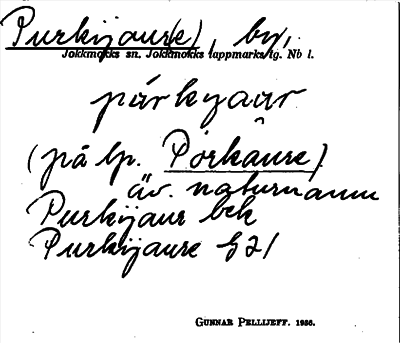 Purkijaur(e), by,
Jokkmokks sn. Jokkmokks lappmarks tg. Nb l.
pärkyaur
(på lp. Pörkaure)
äv. naturnamn
Purkijaur bek
Purkijaure G 21
GUNNAR PELLIJEFF. 1956.